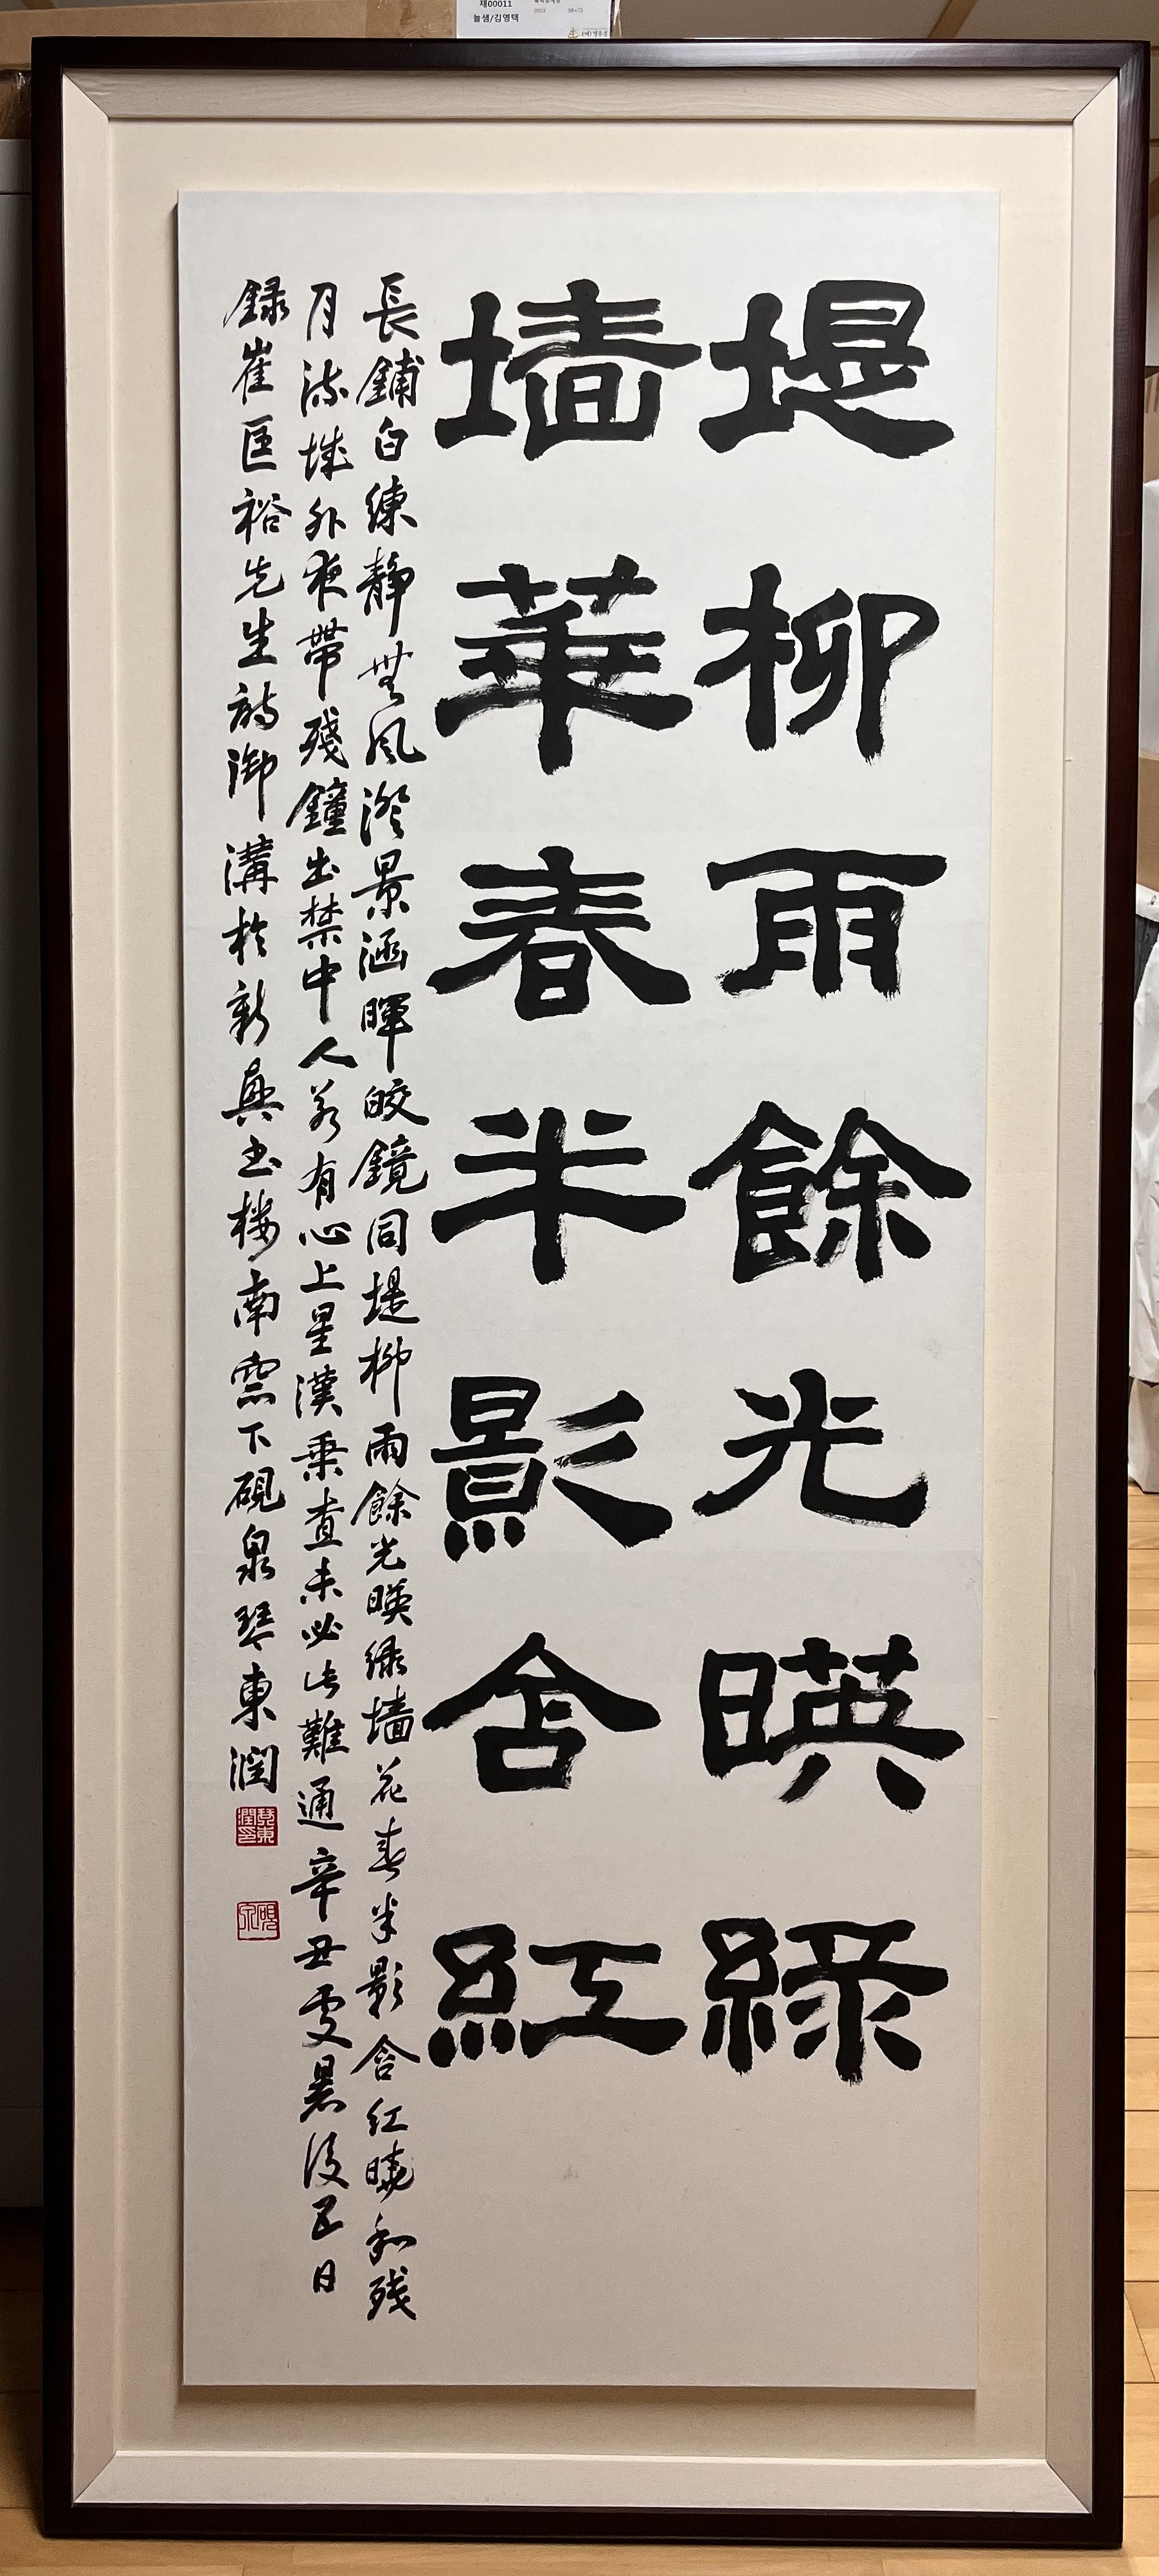 재00011
늘샘/김영택
堤柳雨餘光暎綠
墻華春半影含紅
長鋪白練靜無風澄景涵暉皎鏡同堤柳雨餘光暎綠墻花春半影含紅曉和残
月流城外夜帶殘鐘出禁中人若有心上星漢乘查未必此難通辛丑雯暑後五日
錄崔匡裕先生詩御溝於新興书樓南窓下硯泉琴東潤